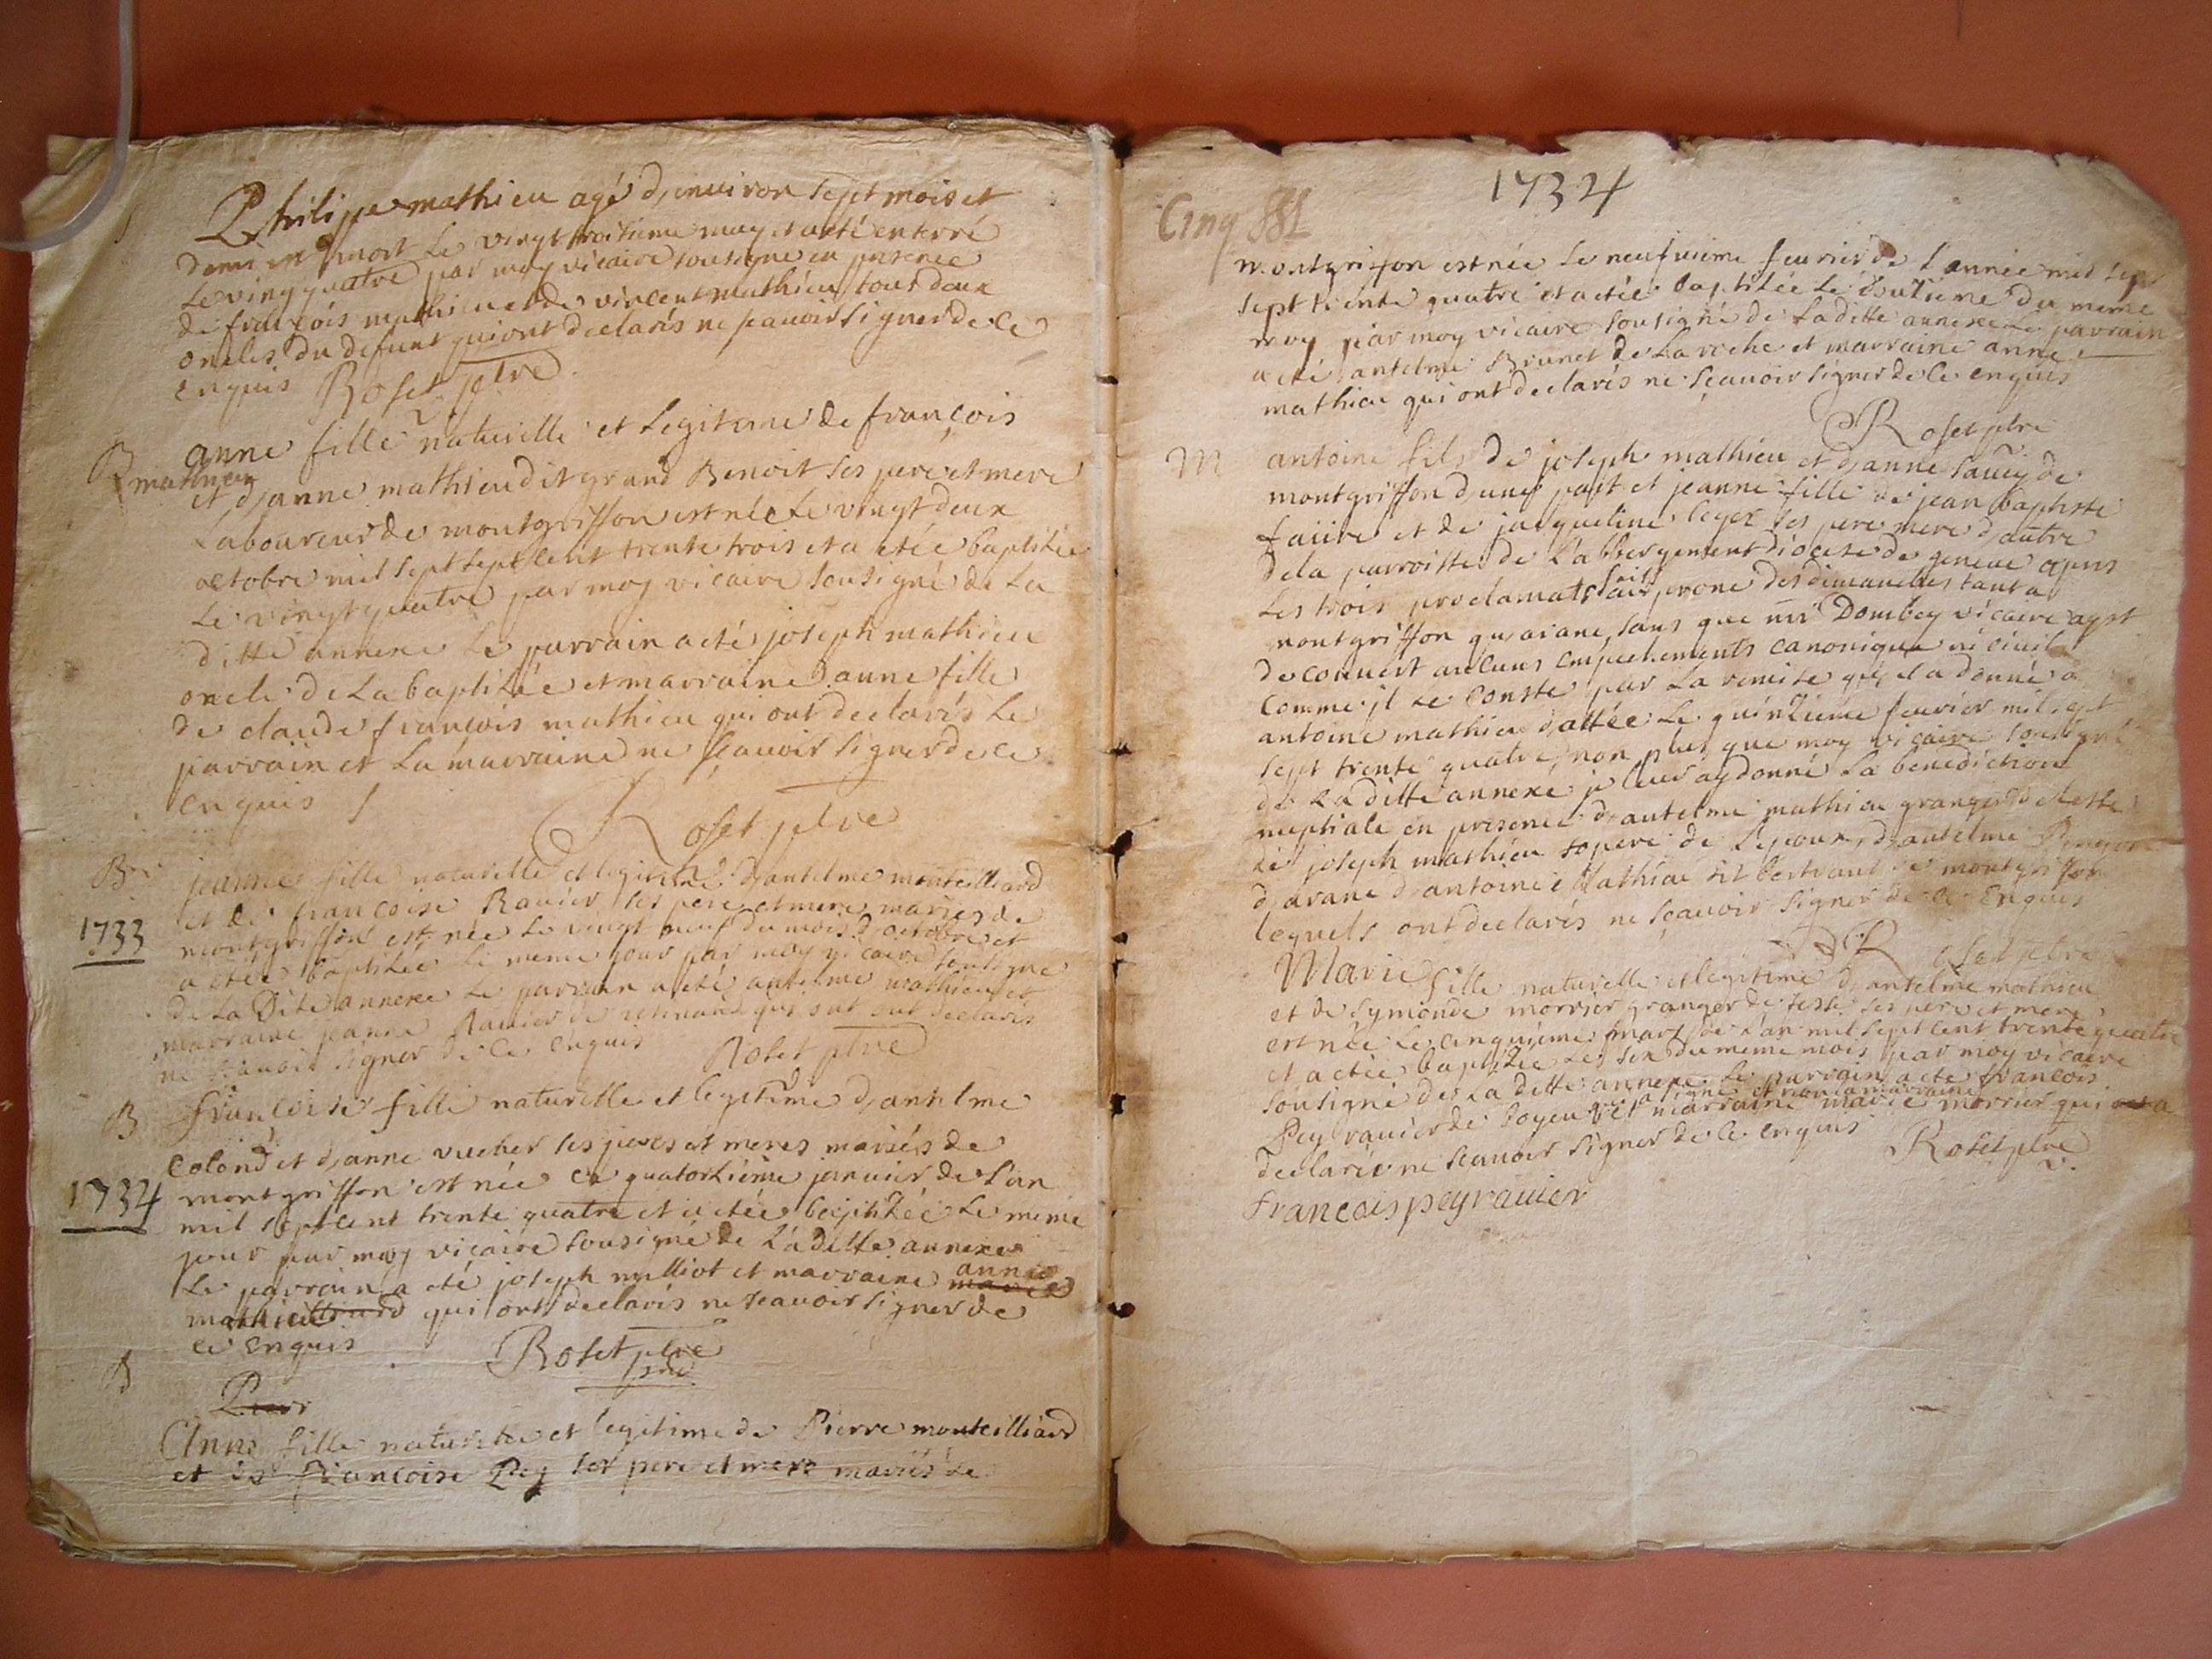 Philippe mathieu agé d,environ sept mois et
demi est mort le vingt troisieme may et a eté enterré
le vingt quatre par moy vicaire sousigné en presence
de françois mathieu et de vincent mathieu tout deux
oncles du defunt qui ont declarés ne scavoir signer de ce
enquis Roset ptre
B
anne fille naturelle et legitime de françois
mathieu
et d,anne mathieu dit grand Benoit ses pere et mere
laboureur de montgriffon est née le vingt deux
octobre mil sept sept cent trente trois et a etée baptisée
le vingt quatre par moy vicaire sousigné de la
ditte annexe le parrain a eté joseph mathieu
oncle de la baptisée et marraine anne fille
de claude francois mathieu qui ont declarés le
parrain et la marraine ne scavoir signer de ce
enquis
Roset ptre
B
jeanne fille naturelle et legitime d,antelme monteilliard
et de francoise Ravier ses pere et mere mariés de
1733
montgriffon est née le vingt neuf du mois d,octobre et
a etée baptisée le meme jour par moy vicaire sousigné
de la Dite annexe le parrain a eté antelme mathieu et
marraine jeanne Ravier de qui ont declarés
ne scavoir signer de ce enquis Roset ptre
B
françoise fille naturelle et legitime d,antelme
colond et d,anne vucher ses peres et meres mariés de
1734
montgriffon est née le quatorzieme janvier de l'an
mil sept cent trente quatre et a etée baptizée le meme
jour par moy vicaire sousigné de la ditte annexe
le parrain a eté joseph milliot et marraine anne
mathieu qui ont declarés ne scavoir signer de
ce enquis
Roset ptre
B
Pierr
Anne fille naturelle et legitime de Pierre monteilliard
et de francoise Pey ses pere et mere mariés de
1734
Cinq
montgriffon est née le neufvieme fevrier de l'année mil sept
sept trente quatre et a etée baptisée le du meme
moy par moy vicaire sousigné de la ditte annexe le parrain
a eté antelme Brunet de la roche et marraine anne
mathieu qui ont declarés ne scavoir signer de ce enquis
Roset ptre
M
antoine fils de joseph mathieu et d,anne de
montgriffon d,une part et jeanne fille de jean baptiste
faivre et de jacqueline leger ses pere mere d,autre
de la parroisse de l'abbergement diocese de geneve apres
les trois proclamats faits prone des dimanches tant a
montgriffon qu,arane, sans que mr Dombey vicaire ayt
decouvert aucuns empechements canonique ni civil
comme il le conste par la remise qu,il a donné a
antoine mathieu dattée le quinzieme fevrier mil sept
sept trente quatre, non plus que moy vicaire sousigné
de la ditte annexe je leur ay donné la benediction
nuptiale en presence d,antelme mathieu granger de
de joseph mathieu pere de l,epoux, d,antelme
d,arane d,antoine mathieu dit bertrand de montgriffon
lequels ont declarés ne sçavoir signer de ce enquis
Roset ptre
Marie fille naturelle et legitime d,antelme mathieu
et de symonde morrier granger de ses pere et mere
est née le cinquieme mars de l'an mil sept cent trente quatre
et a etée baptizée le six du meme mois par moy vicaire
sousigné de la ditte annexe le parrain a eté francois
qui a signé et non la marraine
Pey ravier de boyeu et marraine marie morrier qui a
declarée ne scavoir signer de ce enquis
Roset ptre
francois pey ravier